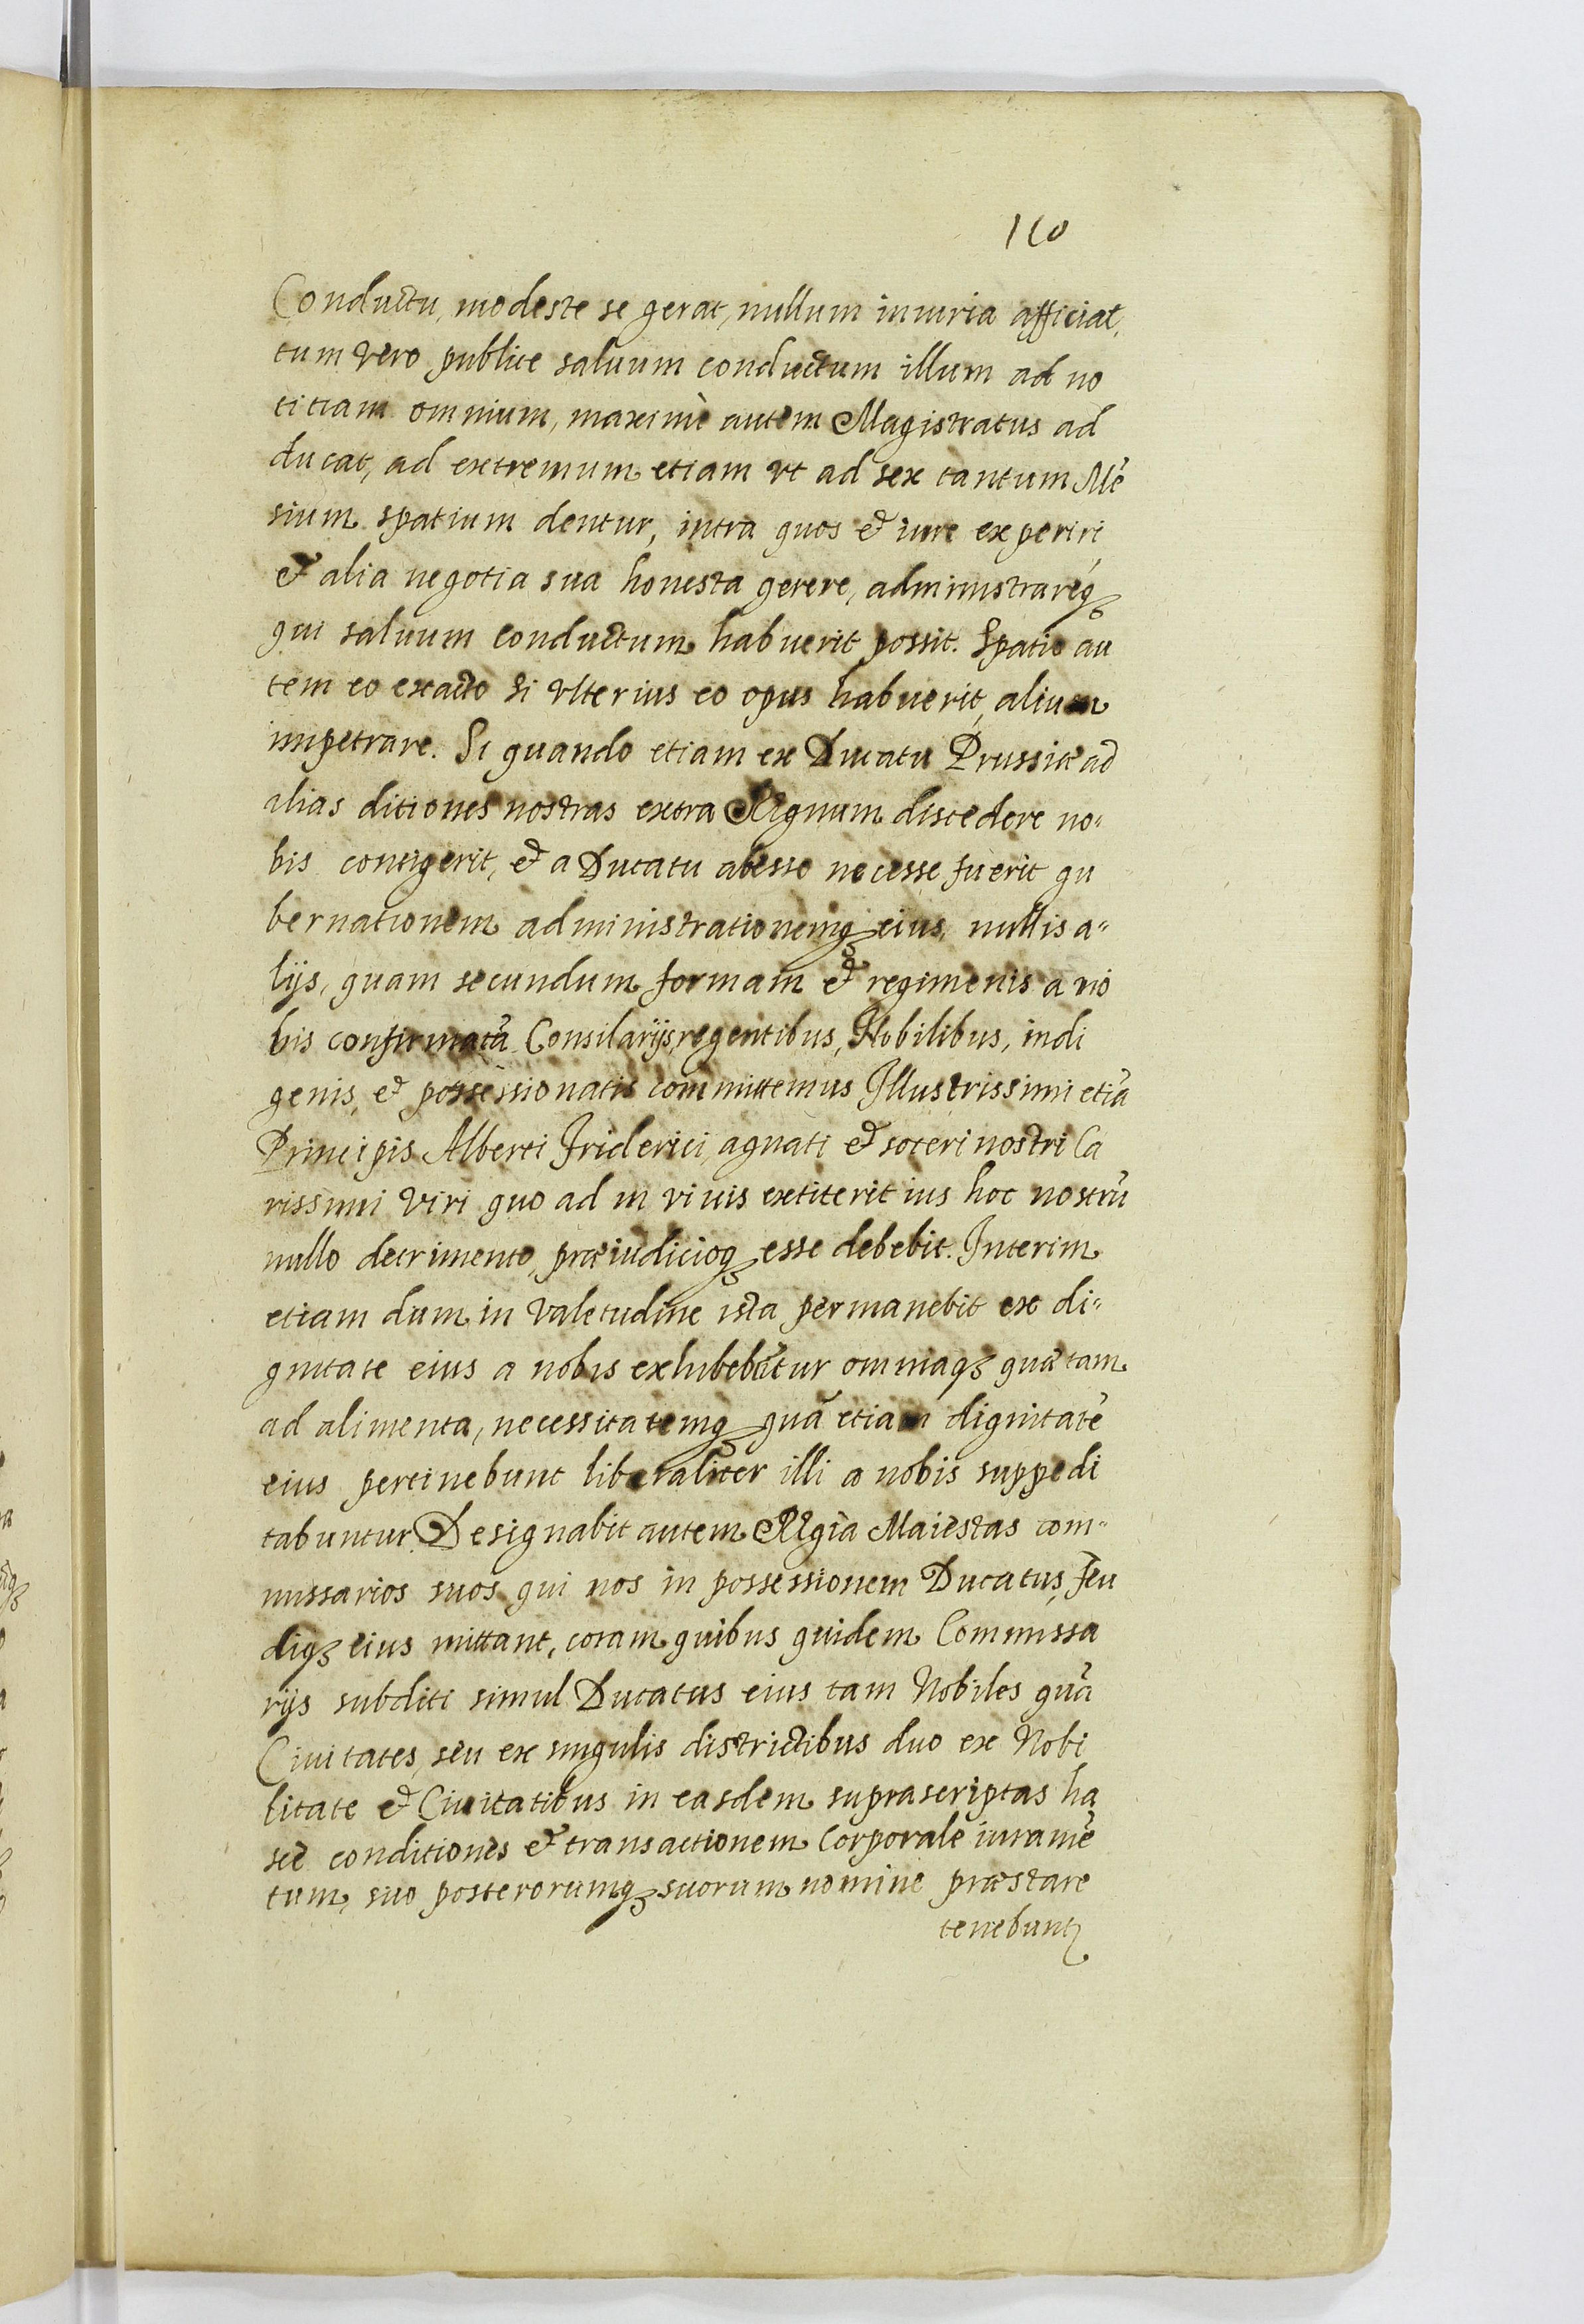 110
Conductu, modeste se gerat, nullum iniuria afficiat,
tum vero publice saluum conductum illum ad no
titiam omnium, maximè autem Magistratus ad
ducat, ad extremum etiam vt ad sex tantum Mē
sium spatium dentur, intra quos & iure experiri
& alia negotia sua honesta gerere, administrareq₃
qui saluum conductum habuerit possit. Spatio au
tem eo exacto si vlterius eo opus habuerit, alium
impetrare. Si quando etiam ex Ducatu Prussiæ ad
alias ditiones nostras extra Regnum discedere no-
bis contigerit, & a Ducatu abesse necesse fuerit gu
bernationem administrationemq₃ eius, nullis a-
lijs, quam secundum formam & regimenis a no
bis confirmatā Consilarijs, regentibus, Nobilibus, indi
genis, & possessionatis committemus Illustrissimi etiā
Principis Alberti Friderici, agnati & soceri nostri Ca
rissimi viri quo ad in viuis extiterit ius hoc nostrū
nullo detrimento, præiudicioq₃ esse debebit. Interim
etiam dum in valetudine ista permanebit ex di-
gnitate eius a nobis exhibebitur omniaq₃ quæ tam
ad alimenta, necessitatemq₃ quā etiam dignitatē
eius pertinebunt liberaliter illi a nobis suppedi
tabuntur. Designabit autem Regia Maiestas com-
missarios suos qui nos in possessionem Ducatus, feu
diq₃ eius mittant, coram quibus quidem Commissa
rijs subditi simul Ducatus eius tam Nobiles quā
Ciuitates, seu ex singulis districtibus duo ex Nobi
litate & Ciuitatibus in easdem suprascriptas ha
scē conditiones & transactionem Corporale iuramē
tum, suo posterorumq₃ suorum nomine præstare
tenebunt